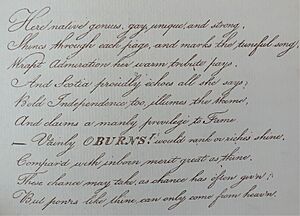 Here native genius, gay, unique, and strong,
Shines through each page, and marks the tuneful song;
Wrapt Admiration her warm tribute pays,
And Scotia proudly echos all she says;
Bold Independence, too, illumes the theme,
And claims a manly privilege to Fame.
— Vainly O BURNS! would rank or riches shine,
Compar'd with inborn merit great as thine,
These chance may take, as chance has often giv'n;
But pow'rs like thine, can only come from heav'n.